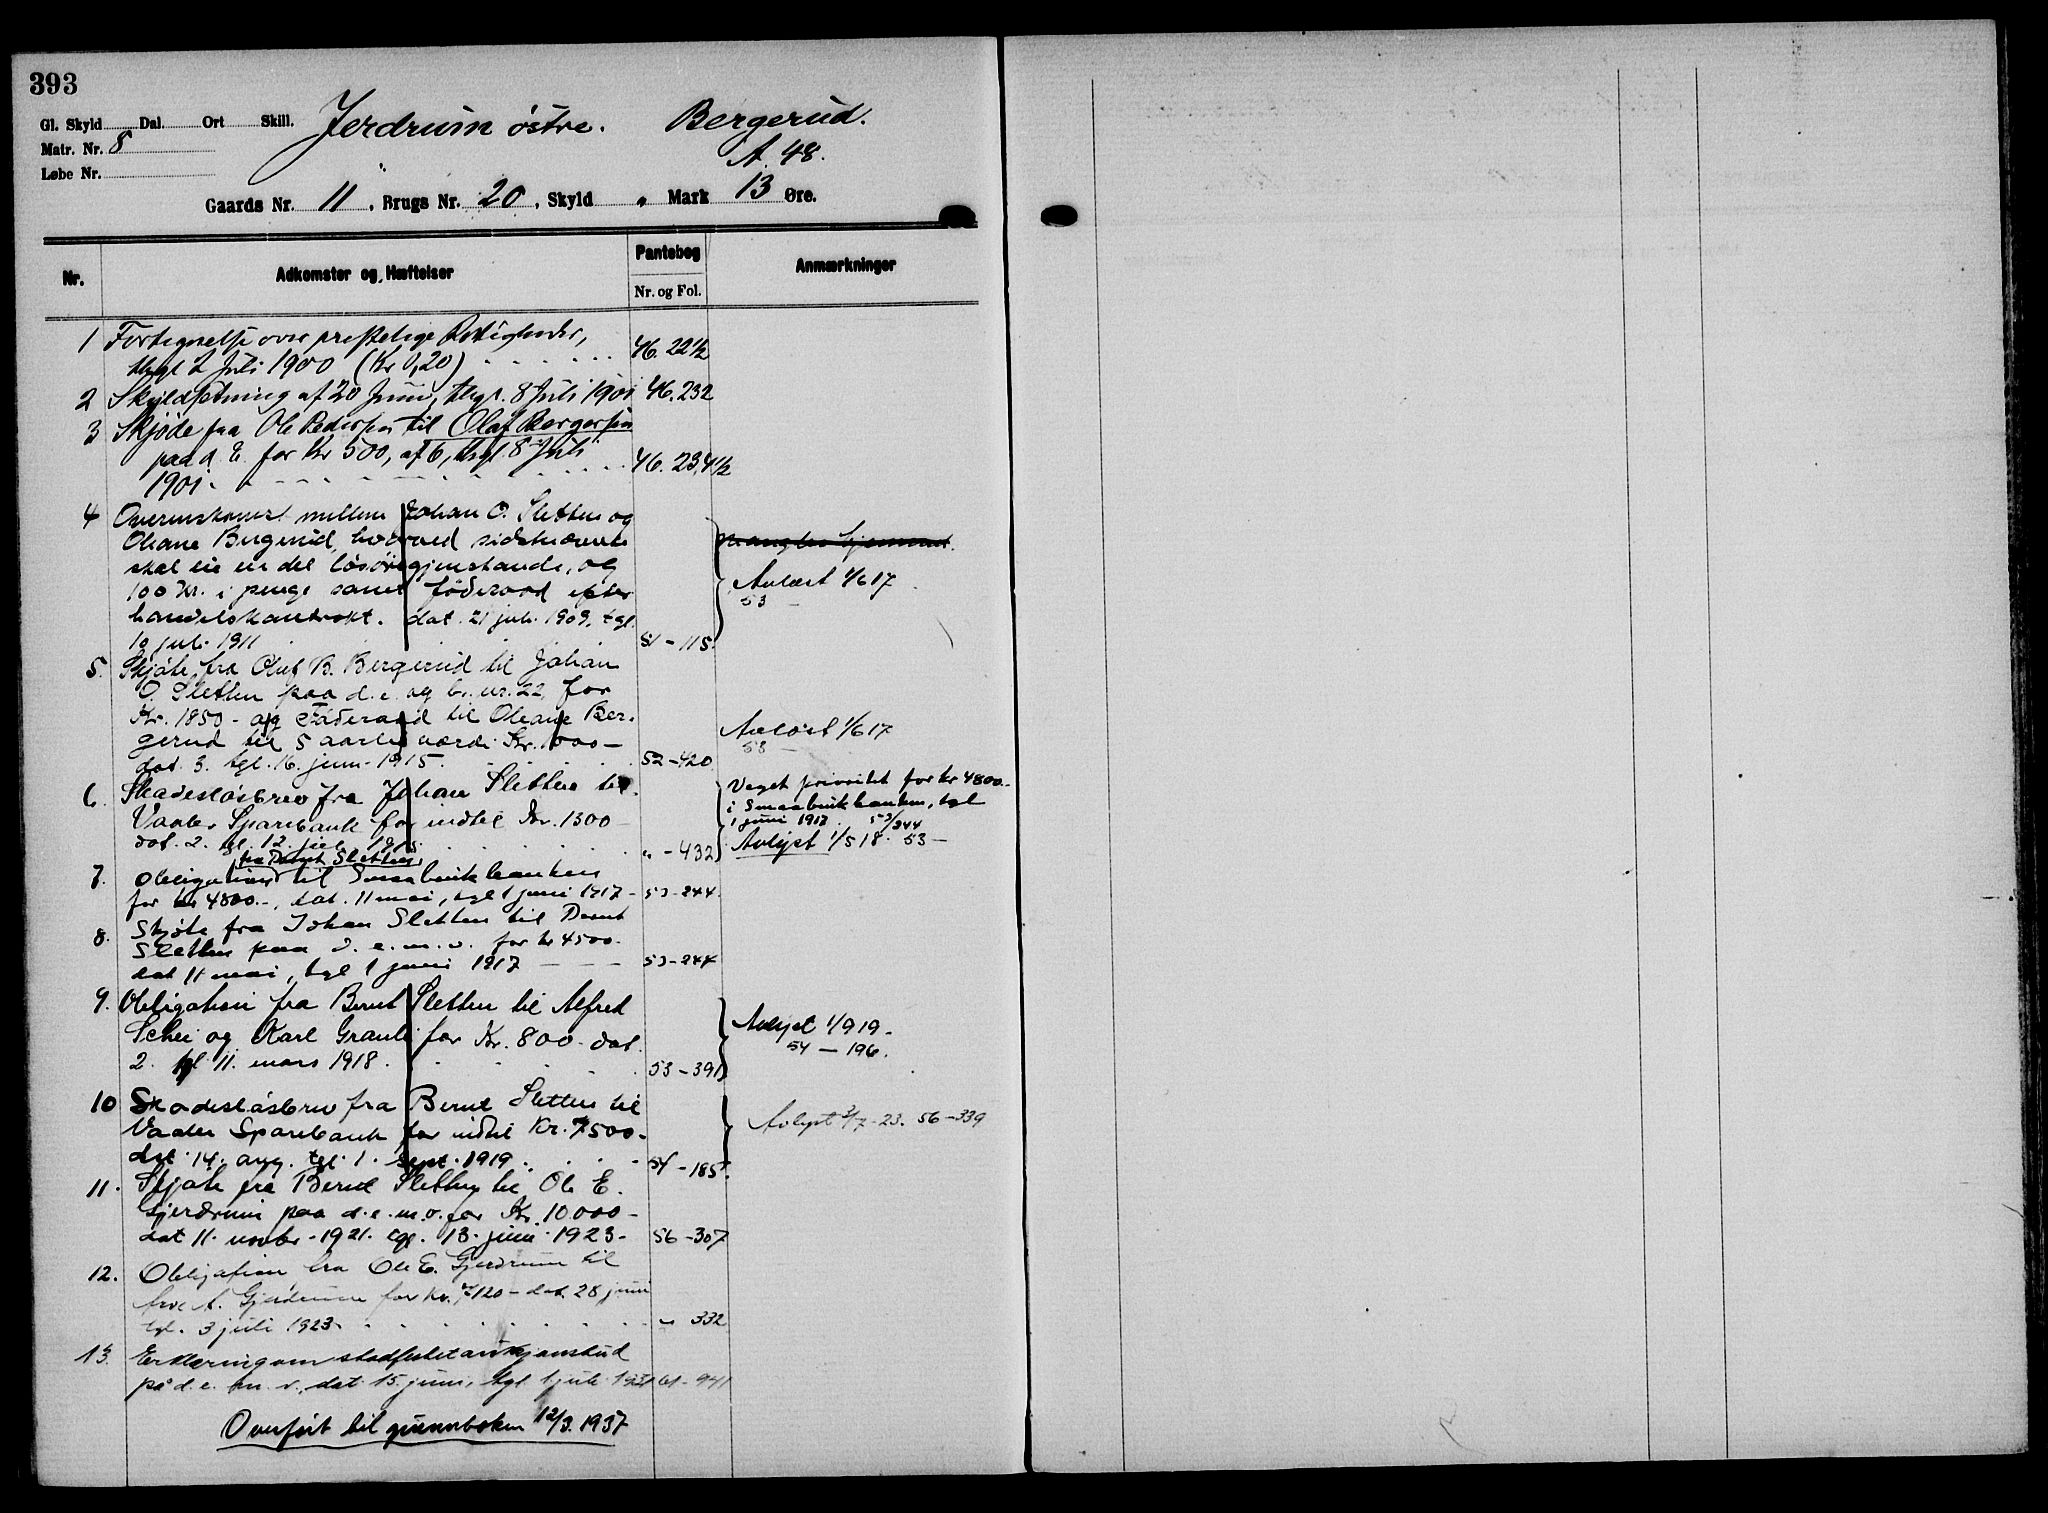 393
Gl. Skyld Dal. Ort Skill.
Jerdrum østre. Bergerud.
Matr. Nr. 8
A. 48.
Løbe Nr.
Gaards Nr. 11, Brugs Nr. 20, Skyld " Mark 13 Øre.
Nr. Adkomster og Hæftelser Pantebog Anmærkninger
Nr. og Fol.
1 Fortegnelse over præstelige Rettigheder,
thgl 2 Juli 1900 (Kr 0,20) 46. 22 1/2
2 Skyldsetning af 20 Juni, thgl. 8 Juli 1901 46. 232
3 Skjøde fra Ole Pedersen til Olaf Bergersen
paa d. E. for Kr 500, af 6, thgl 8 Juli
1901. 46. 234 1/2
4 Overenskomst mellem Johan O. Sletten og
Oleane Bergerud, hvorved sidstnævnte
skal eie en del løsøregjenstande, og
100 Kr. i penge samt føderaad efter
handelskontrakt. dat. 21 juli 1909, tgl.
10 juli 1911 51-115
Avløst 1/6 17
53 -
5. Skjøte fra Oluf B. Bergerud til Johan
O. Sletten paa d. e. og br. nr. 22, for
Kr. 1850- og Føderaad til Oleane Ber-
gerud til 5 aarlig værdi Kr. 1000-
dat. 3. tgl. 16. juni 1915. 52-420
Avløst 1/6 17
53 -
6. Skadesløsbrev fra Johan Sletten til
Vaaler Sparebank for indtil Kr. 1300-
dat. 2. tgl. 12. juli 1915. " - 432
Veget prioritet for kr 4800.-
i Smaabrukbanken, tgl
1 juni 1917 53/244
Avlyst 1/5 18. 53 -
fra Bernt Sletten
7. Obligation til Smaabrukbanken
for kr 4800.-, dat. 11 mai, tgl 1 juni 1917 - 53-244.
8. Skjøte fra Johan Sletten til Bernt
Sletten paa d. e. m. v. for kr 4500.
dat 11 mai, tgl 1 juni 1917 53-244
9. Obligation fra Bernt Sletten til Alfred
Schei og Karl Granli for Kr. 800- dat.
2. tgl. 11. mars 1918. 53-391
Avlyst 1/9 19-
54 - 196.
10 Skadesløsbrev fra Bernt Sletten til
Vaaler Sparebank for indtil Kr. 7500-
dat. 14. aug. tgl. 1. sept. 1919. 54-185
Avlyst 3/7-23. 56-339
11. Skjøte fra Bernt Sletten til Ole E.
Gjerdrum paa d. e. m. v. for Kr. 10.000-
dat 11. novbr. 1921. tgl. 13. juni 1923- 56-307
12. Obligation fra Ole E. Gjerdrum til
A. Gjerdrum for Kr. 7120- dat. 28 juni
tgl. 3 juli 1923. " 332
13. Erklæring om stadfestet
på d. e. m. v., dat. 15. juni, tgl. 1 juli 1931 61-941
Overført til grunnboken 12/3. 1937